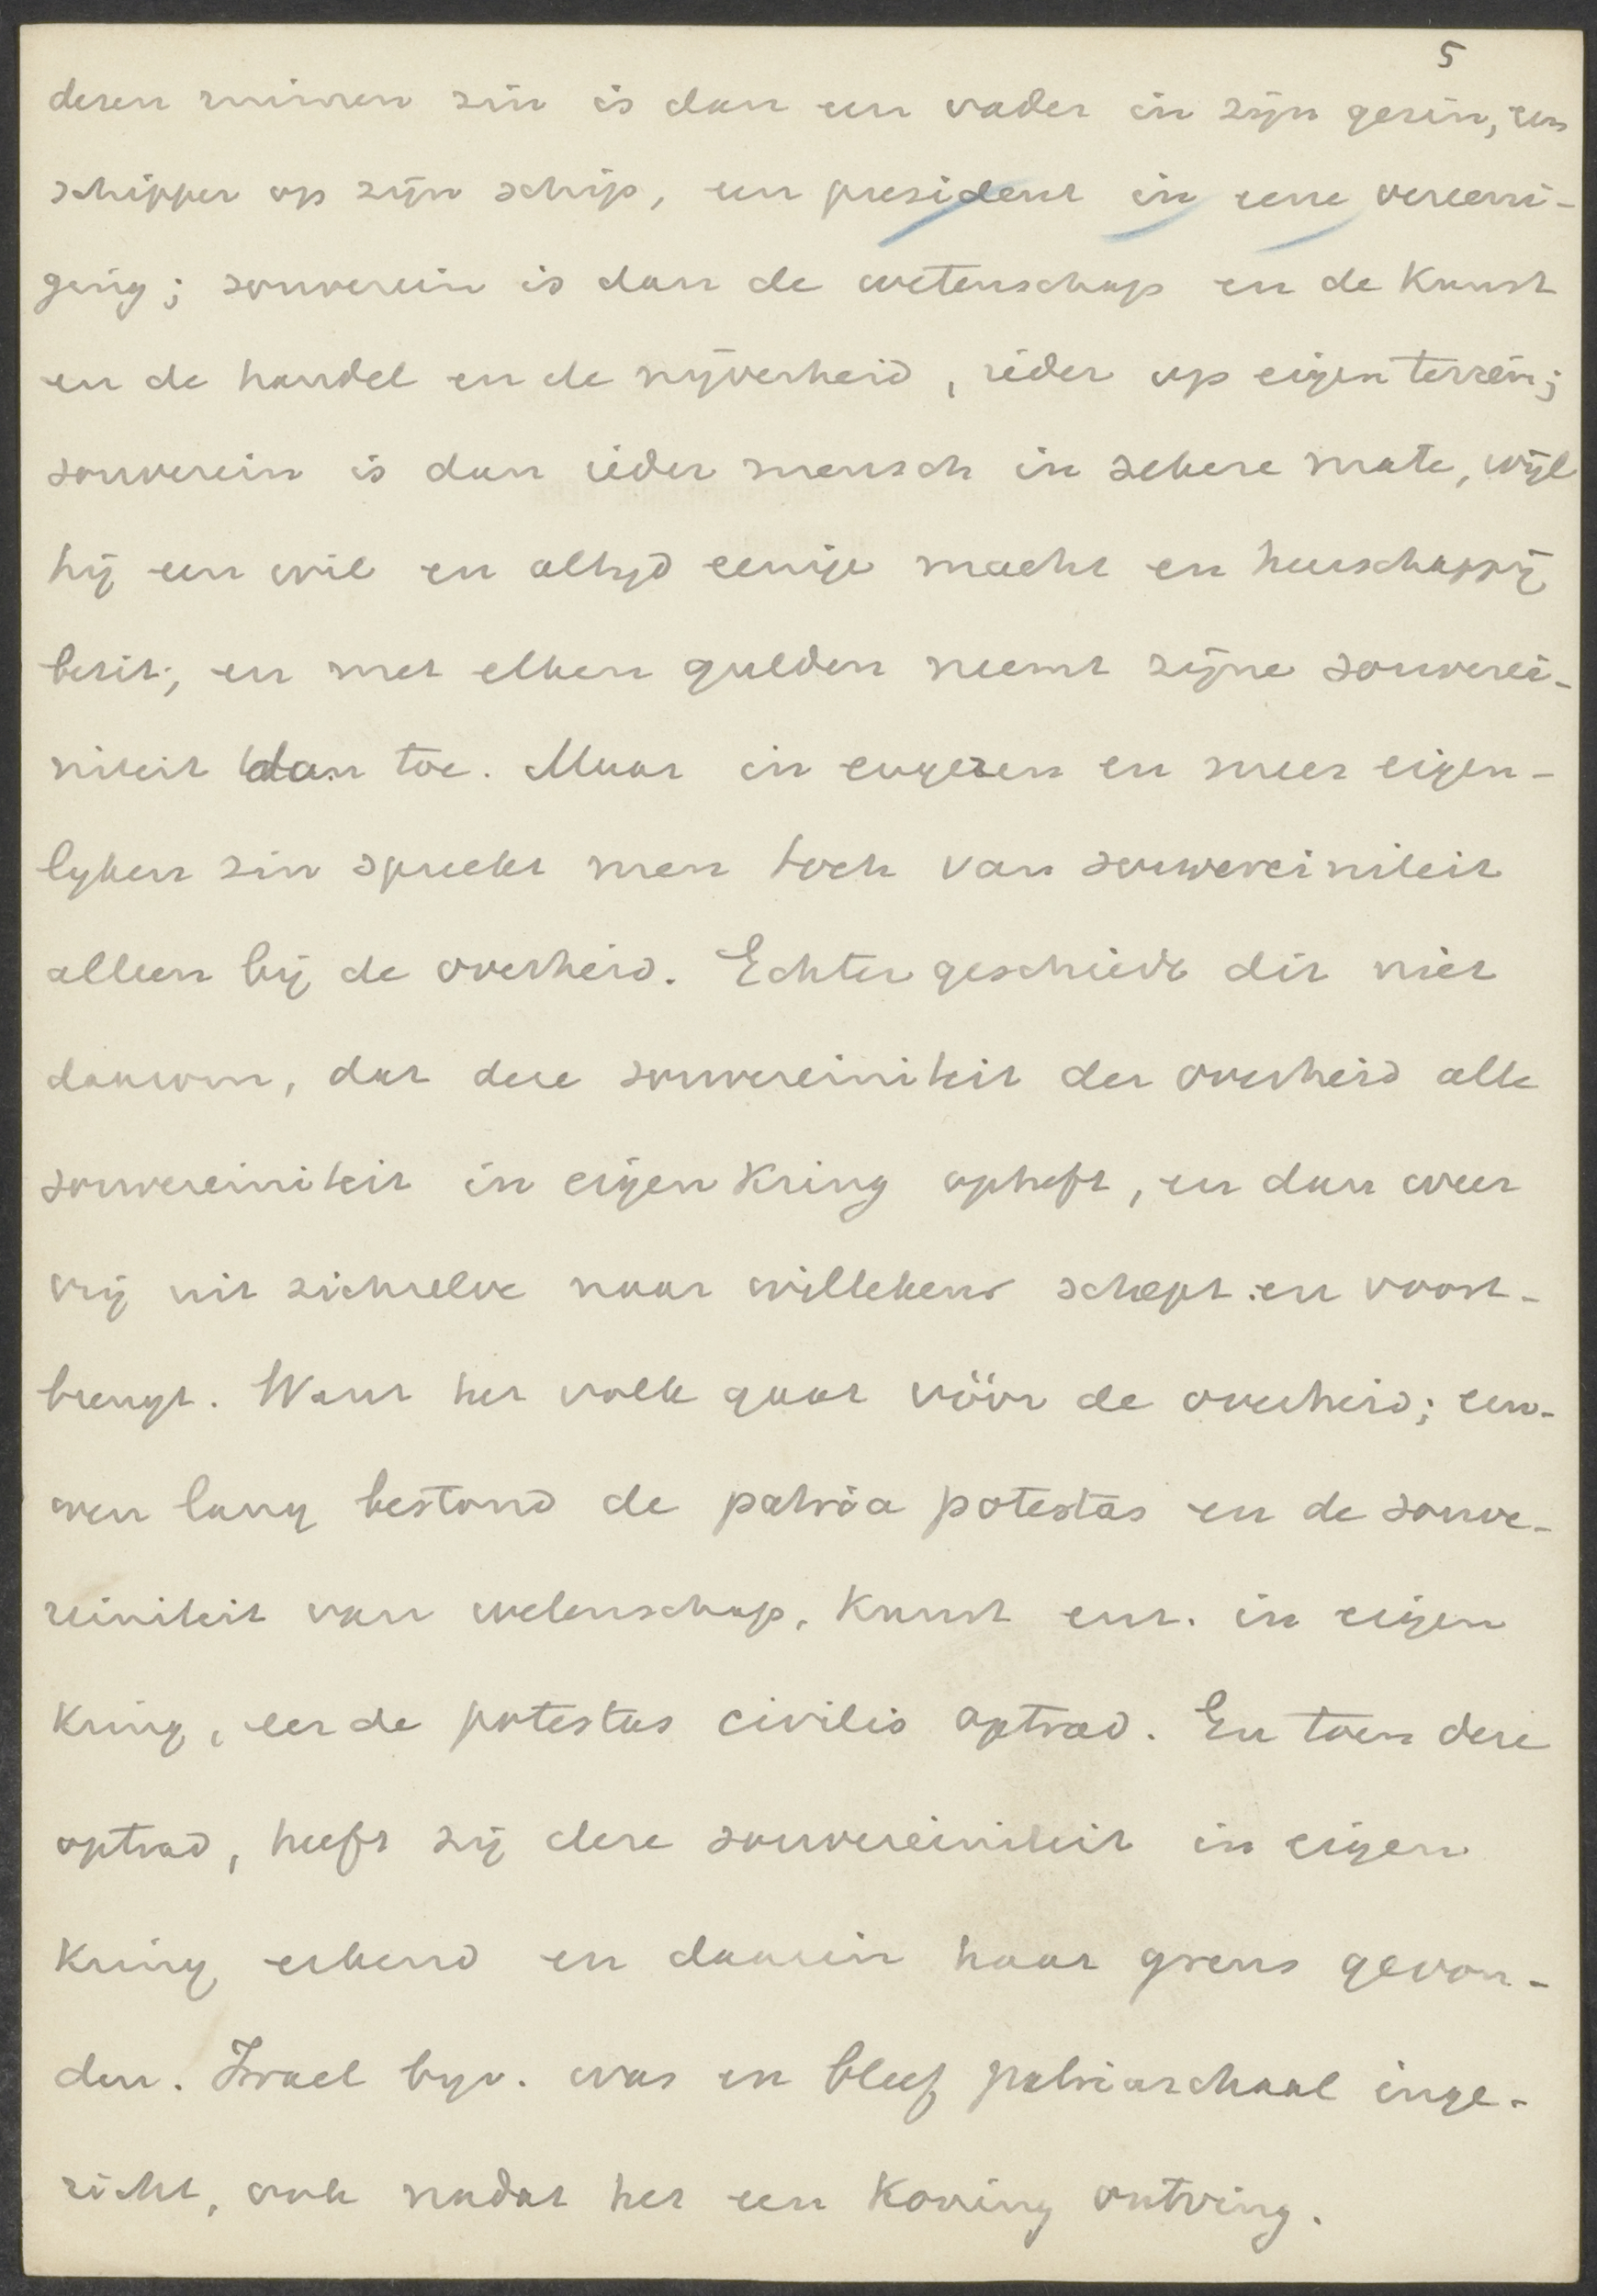 5
dezen ruimen zin is dan een vader in zijn gezin, een
schipper op zijn schip, een president in eene vereeni-
ging; souverein is dan de wetenschap en de kunst
en de handel en de nijverheid, ieder op eigen terrein;
souverein is dan ieder mensch in zekere mate, wijl
hij een wil en altijd eenige macht en heerschappij
bezit; en met elken gulden neemt zijne souverei-
niteit dan toe. Maar in engeren en meer eigen-
lijken zin spreekt men toch van souvereiniteit
alleen bij de overheid. Echter geschiedt dit niet
daarom, dat deze souvereiniteit der overheid alle
souvereiniteit in eigen kring opheft, en dan weer
vrij uit zichzelve naar willekeur schept en voort-
brengt. Want het volk gaat vóór de overheid; eeu-
wen lang bestond de patria potestas en de souve-
reiniteit van wetenschap, kunst enz. in eigen
kring, eer de potestas civilis optrad. En toen deze
optrad, heeft zij deze souvereiniteit in eigen
kring erkend en daarin haar grens gevon-
den. Israel bijv. was en bleef patriarchaal inge-
richt, ook nadat het een koning ontving.